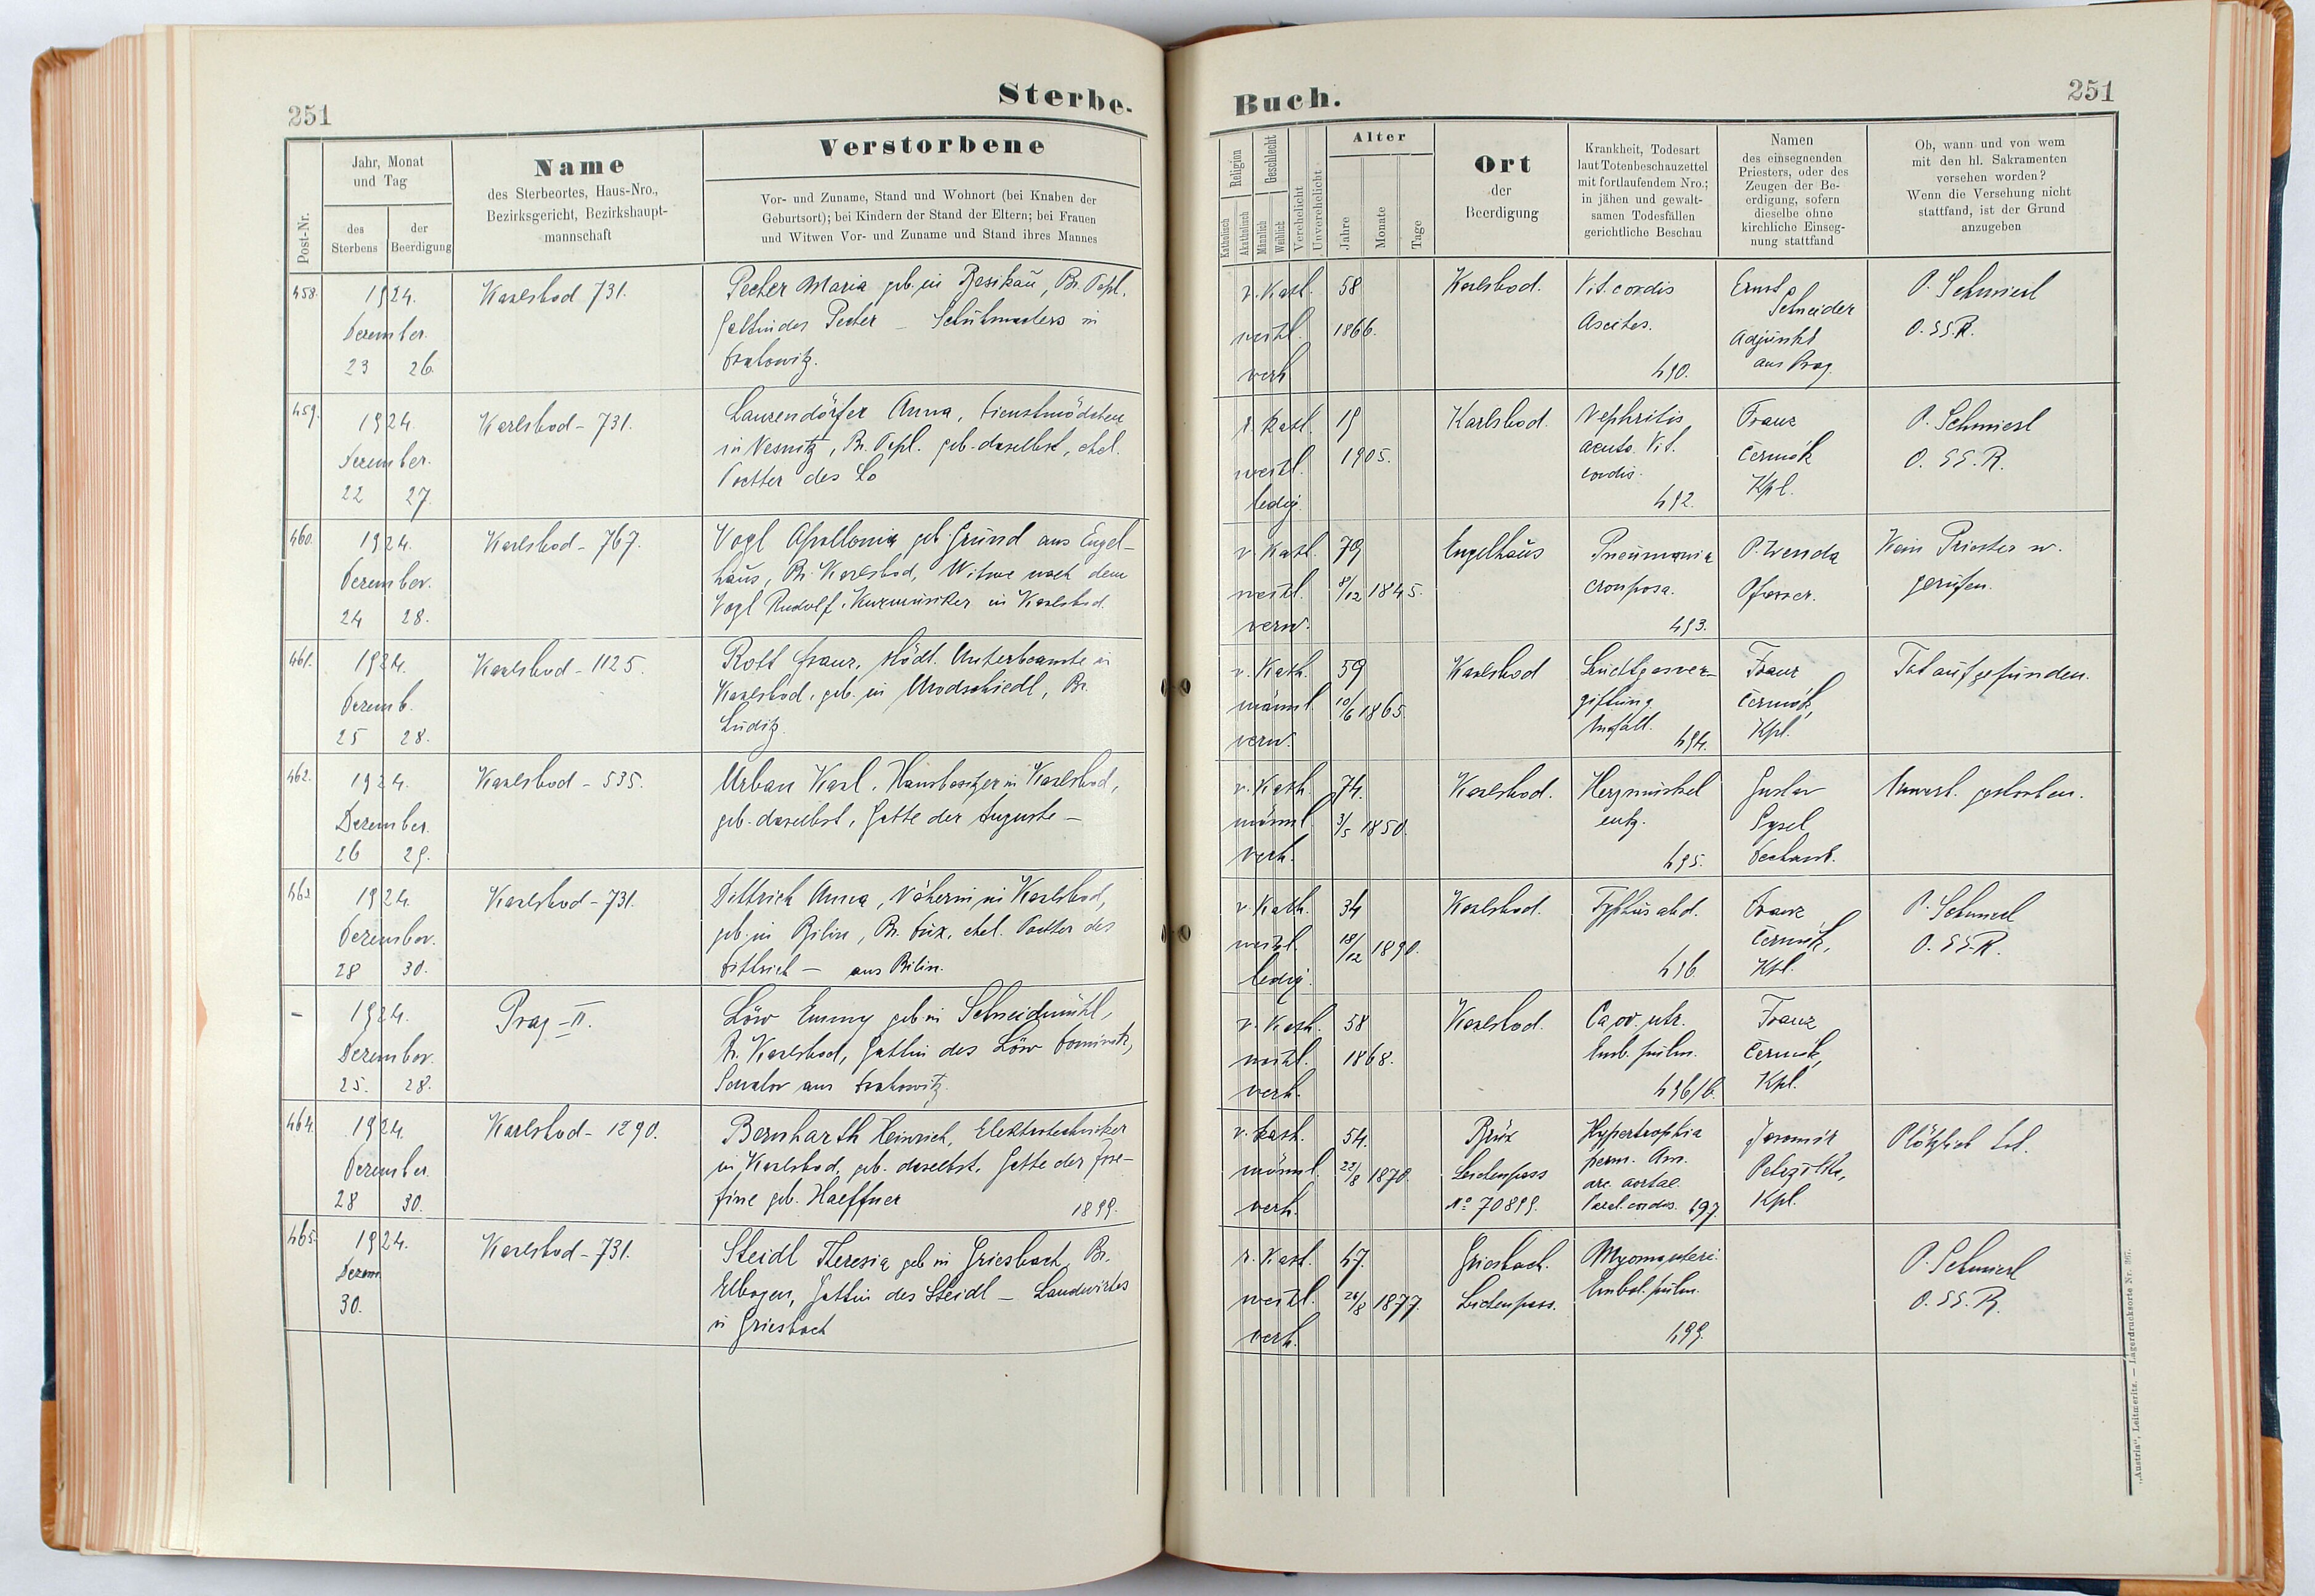 251
Sterbe-
Buch.
251
Post-Nr.
Jahr, Monat
und Tag
des
Sterbens
der
Beerdigung
Name
des Sterbeortes, Haus-Nro.,
Bezirksgericht, Bezirkshaupt-
mannschaft
Verstorbene
Vor- und Zuname, Stand und Wohnort (bei Knaben der
Geburtsort); bei Kindern der Stand der Eltern; bei Frauen
und Witwen Vor- und Zuname und Stand ihres Mannes
Religion
Katholisch
Akatholisch
Geschlecht
Männlich
Weiblich
Verehelicht
Unverehelicht
Alter
Jahre
Monate
Tage
Ort
der
Beerdigung
Krankheit, Todesart
laut Totenbeschauzettel
mit fortlaufendem Nro.;
in jähen und gewalt-
samen Todesfällen
gerichtliche Beschau
Namen
des einsegnenden
Priesters, oder des
Zeugen der Be-
erdigung, sofern
dieselbe ohne
kirchliche Einseg-
nung stattfand
Ob, wann und von wem
mit den hl. Sakramenten
versehen worden?
Wenn die Versehung nicht
stattfand, ist der Grund
anzugeben
458.
1924.
Dezember.
23 26.
Karlsbad 731.
Pecher Maria geb. in Pesikau, Bz. Tepl,
Gattin des Pecher –
in
r. Kath.
weibl.
verh
58
1866.
Karlsbad.
Vit. cordis
Ascites.
490.
Ernst
Schneider
Adjunkt
aus Prag.
P. Schmierl
O. SS. R.
459.
1924.
Dezember.
22 27.
Karlsbad – 731.
Lanzendörfer Anna, Dienstmädchen
in Nesnitz, Bz. Tepl. geb. daselbst, ehel.
Tochter des Lo
r. Kath.
weibl.
ledig.
19
1905.
Karlsbad.
Nephritis
acuta. Vit.
cordis.
492.
Franz
Čermák
Kpl.
P. Schmierl
O. SS. R.
460.
1924.
Dezember.
24 28.
Karlsbad – 767.
Vogl Apollonia geb. Gründ aus Engel-
haus, Bz. Karlsbad, Witwe nach dem
Vogl Rudolf, Kurmusiker in Karlsbad.
r. Kath.
weibl.
verw.
79
8/12 1845.
Engelhaus
Pneumonia
crouposa.
493.
P. Wenda
Pfarrer.
Kein Priester w.
gerufen.
461.
1924.
Dezemb.
25 28.
Karlsbad – 1125.
Rott Franz, städt. Unterbeamte in
Karlsbad, geb. in Udrodschiedl, Bz.
Luditz.
r. Kath.
männl.
verw.
59
10/6 1865.
Karlsbad
Leuchtgasver-
giftung.
Unfall.
494.
Franz
Čermák,
Kpl.
Tot aufgefunden.
462.
1924.
Dezember.
26 29.
Karlsbad – 535.
Urban Karl, Hausbesitzer in Karlsbad,
geb. daselbst, Gatte der Auguste –
r. Kath.
männl.
verh.
74.
3/5 1850.
Karlsbad.
Herzmuskel
entz.
495.
Gustav
Sysel
Dechant.
Unerw. gestorben.
463.
1924.
Dezember.
28 30.
Karlsbad – 731.
Dittrich Anna, Näherin in Karlsbad,
geb. in Bilin, Bz. Dux, ehel. Tochter des
Dittrich – aus Bilin.
r. Kath.
weibl.
ledig.
34
18/12 1890.
Karlsbad.
Typhus abd.
496
Franz
Čermák,
Kpl.
P. Schmierl
O. SS. R.
–
1924.
Dezember.
25. 28.
Prag – II.
Löw Emmy geb. in Schneidmühl,
Bz. Karlsbad, Gattin des Löw Dominik,
aus
r. Kath.
weibl.
verh.
58
1868.
Karlsbad.
Ca. ov. utr.
Emb. pulm.
496/b.
Franz
Čermák,
Kpl.
464.
1924.
Dezember.
28 30.
Karlsbad – 1290.
Bernharth Heinrich, Elektrotechniker
in Karlsbad, geb. daselbst, Gatte der Jose-
fine geb. Haeffner 1899.
r. Kath.
männl.
verh.
54.
22/8 1870.
Brüx
Leichenpass
No 70899.
Hypertrophia
perm. An.
arc. aortae.
Paral. cordis. 497.
Jaromír
Kpl.
Plötzlich tot.
465.
1924.
Dezem
30.
Karlsbad – 731.
Steidl Theresia geb. in Griesbach, Bz.
Elbogen, Gattin des Steidl – Landwirtes
in Griesbach
r. Kath.
weibl.
verh.
47.
26/8 1877.
Griesbach.
Leichenpass.
Myoma uteri.
Embol. pulm.
499.
P. Schmierl
O. SS. R.
„Austria“, Leitmeritz. — Lagerdrucksorte Nr. 367.